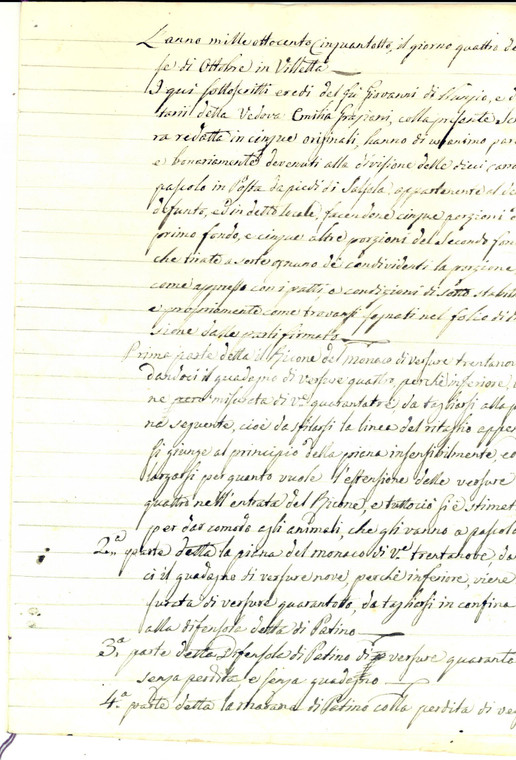 L'anno mille ottocento Cinquantotto, il giorno quattro de
se di Ottobre in Villetta
I qui sottoscritti eredi del fu Giovanni di
tarii della Vedova Emilia Graziani, colla presente Scr
ra redatta in cinque originali, hanno di unanimo pare
e bonariamente devenuti alla divisione delle dieci
pascolo in Posta da piedi di Salpola, appartenente al
defunto, ed in detto locale, facendone cinque porzioni
primo fondo, e cinque altre porzioni del Secondo fon
che tirate a sorte ognuno de' condividenti la porzione
come appresso con i patti e condizioni di sotto stabili
e propriamente come trovansi segnati nel foglio di
sione dalle parti firmato
Prima parte detta il Ricone del Monaco di versure trentanov
dandoci il guadagno di versure quattro, perchè inferiore,
ne però misurata di v.e quarantatre, da tagliarsi alla p
na seguente, cioè da filarsi la linea del ritaglio appe
si giunge al principio della piana insensibilmente, ed
largarsi per quanto vuole l'estensione delle versure
quattro nell'entrata del Ricone, e tuttociò si è stimat
per dar comodo agli animali, che gli vanno a pascola
2.a parte detta la piana del monaco di v.e trentanove, da
ci il guadagno di versure nove, perchè inferiore, viene
surata di versure quarantotto, da tagliarsi in confina
alla difensola detta di Patino
3.a parte detta Difensola di Patino di versure quaranta
senza perdita, e senza guadagno
4.a parte detta la marana di Patino colla perdita di ve